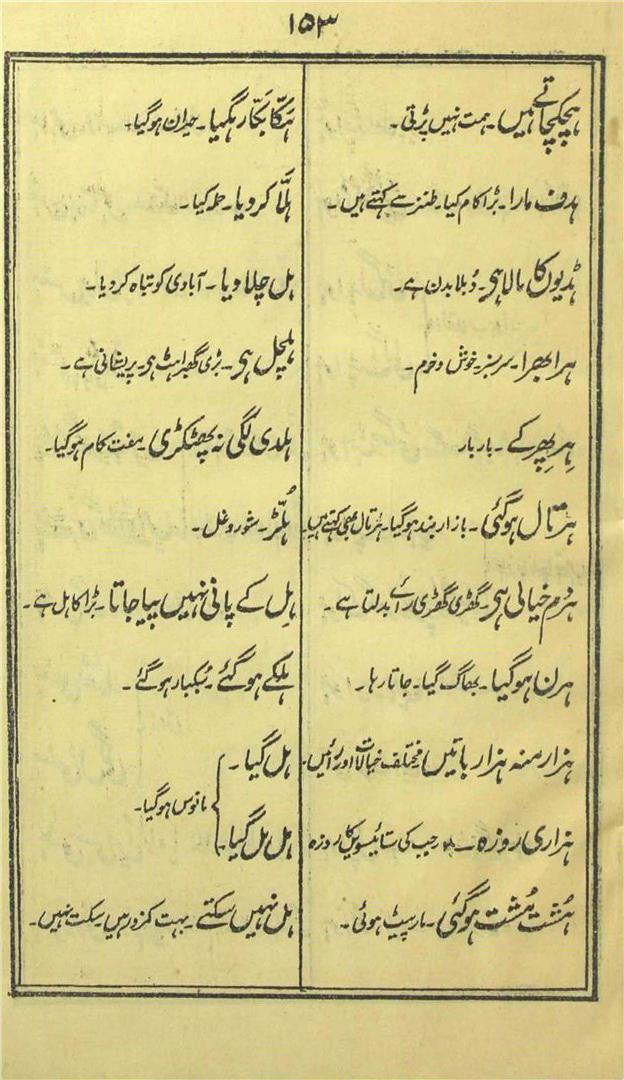 ۱۵۳
ہچکچاتے ہیں۔ ہمت نہیں پڑتی۔
ہدف مارا۔ بڑا کام کیا۔ طنز سے کہتے ہیں۔
ہڈیوں کا مالا ہی۔ دُبلا بدن ہے۔
ہرا بھرا۔ سرسبز۔ خوش و خرم۔
ہِر پھر کے۔ بار بار
ہرتال ہوگئی۔ بازار بند ہوگیا۔ ہڑتال بھی کہتے ہیں۔
ہر دم خیالی ہی۔ گھڑی گھڑی رائے بدلتا ہے۔
ہرن ہوگیا۔ بھاگ گیا۔ جاتا رہا۔
ہزار منہ ہزار باتیں۔ مختلف خیالات اور رائیں۔
ہزاری روزہ۔ رجب کی ستائیسویں کا روزہ
ہُشت مُشت ہوگئی۔ مارپیٹ ہوئی۔
ہکّا بکّا رہگیا۔ حیران ہوگیا۔
ہلّا کردیا۔ حملہ کیا۔
ہل چلا دیا۔ آبادی کو تباہ کردیا۔
ہلچل ہی۔ بڑی گھبراہٹ ہی۔ پریشانی ہے۔
ہلدی لگی نہ پھٹکڑی۔ مفت کام ہوگیا۔
ہُلّڑ۔ شور و غل۔
ہِل کے پانی نہیں پیا جاتا۔ بڑا کاہل ہے۔
ہلکے ہوگئے۔ سُبکبار ہوگئے۔
ہل گیا۔
مانوس ہوگیا۔
ہل مل گیا۔
ہل نہیں سکتے۔ بہت کمزور ہیں۔ سکت نہیں۔